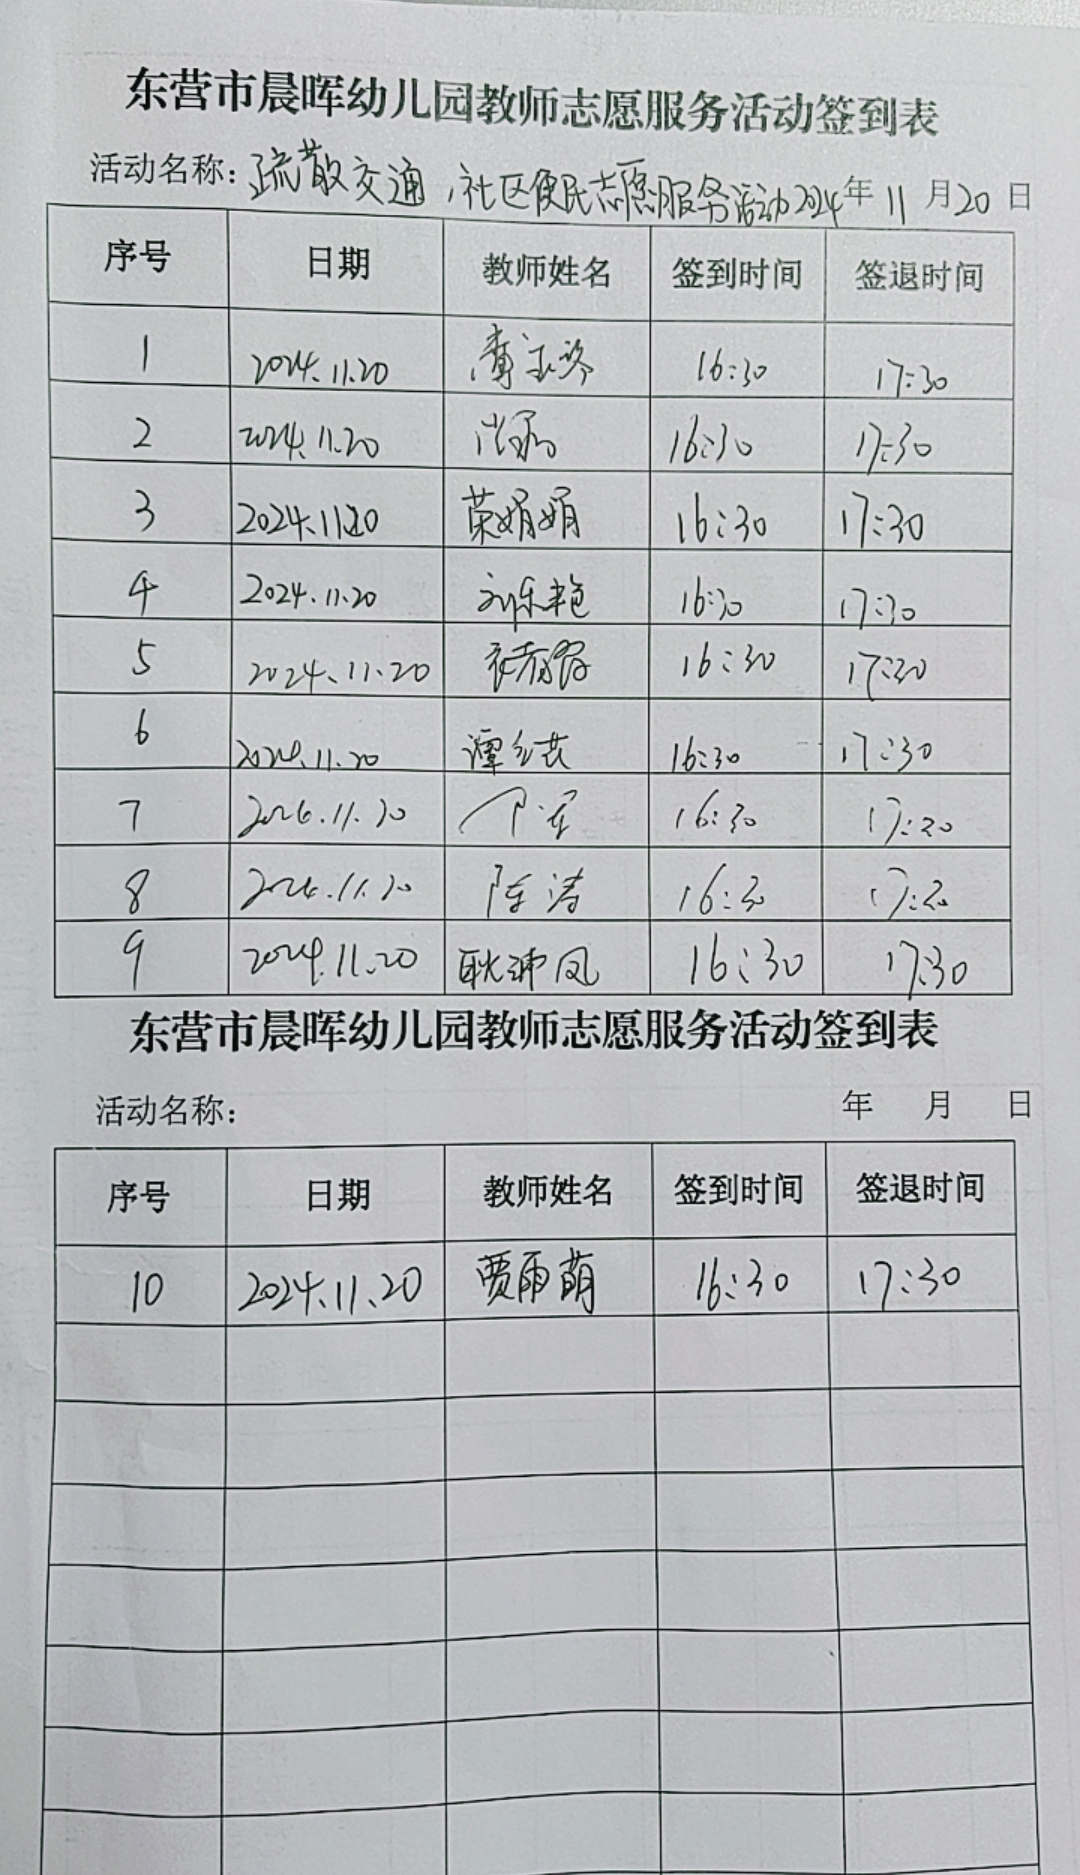 东营市晨晖幼儿园教师志愿服务活动签到表
活动名称：疏散交通，社区便民志愿服务活动 2024年 11 月 20 日
序号 日期 教师姓名 签到时间 签退时间
1 2024.11.20 16:30 17:30
2 2024.11.20 16:30 17:30
3 2024.11.20 荣娟娟 16:30 17:30
4 2024.11.20 刘乐艳 16:30 17:30
5 2024.11.20 16:30 17:30
6 2024.11.20 谭 16:30 17:30
7 11.20 16:30 17:30
8 2024.11.20 陈涛 16:30 17:30
9 2024.11.20 耿沛凤 16:30 17:30
东营市晨晖幼儿园教师志愿服务活动签到表
活动名称： 年 月 日
序号 日期 教师姓名 签到时间 签退时间
10 2024.11.20 贾雨萌 16:30 17:30